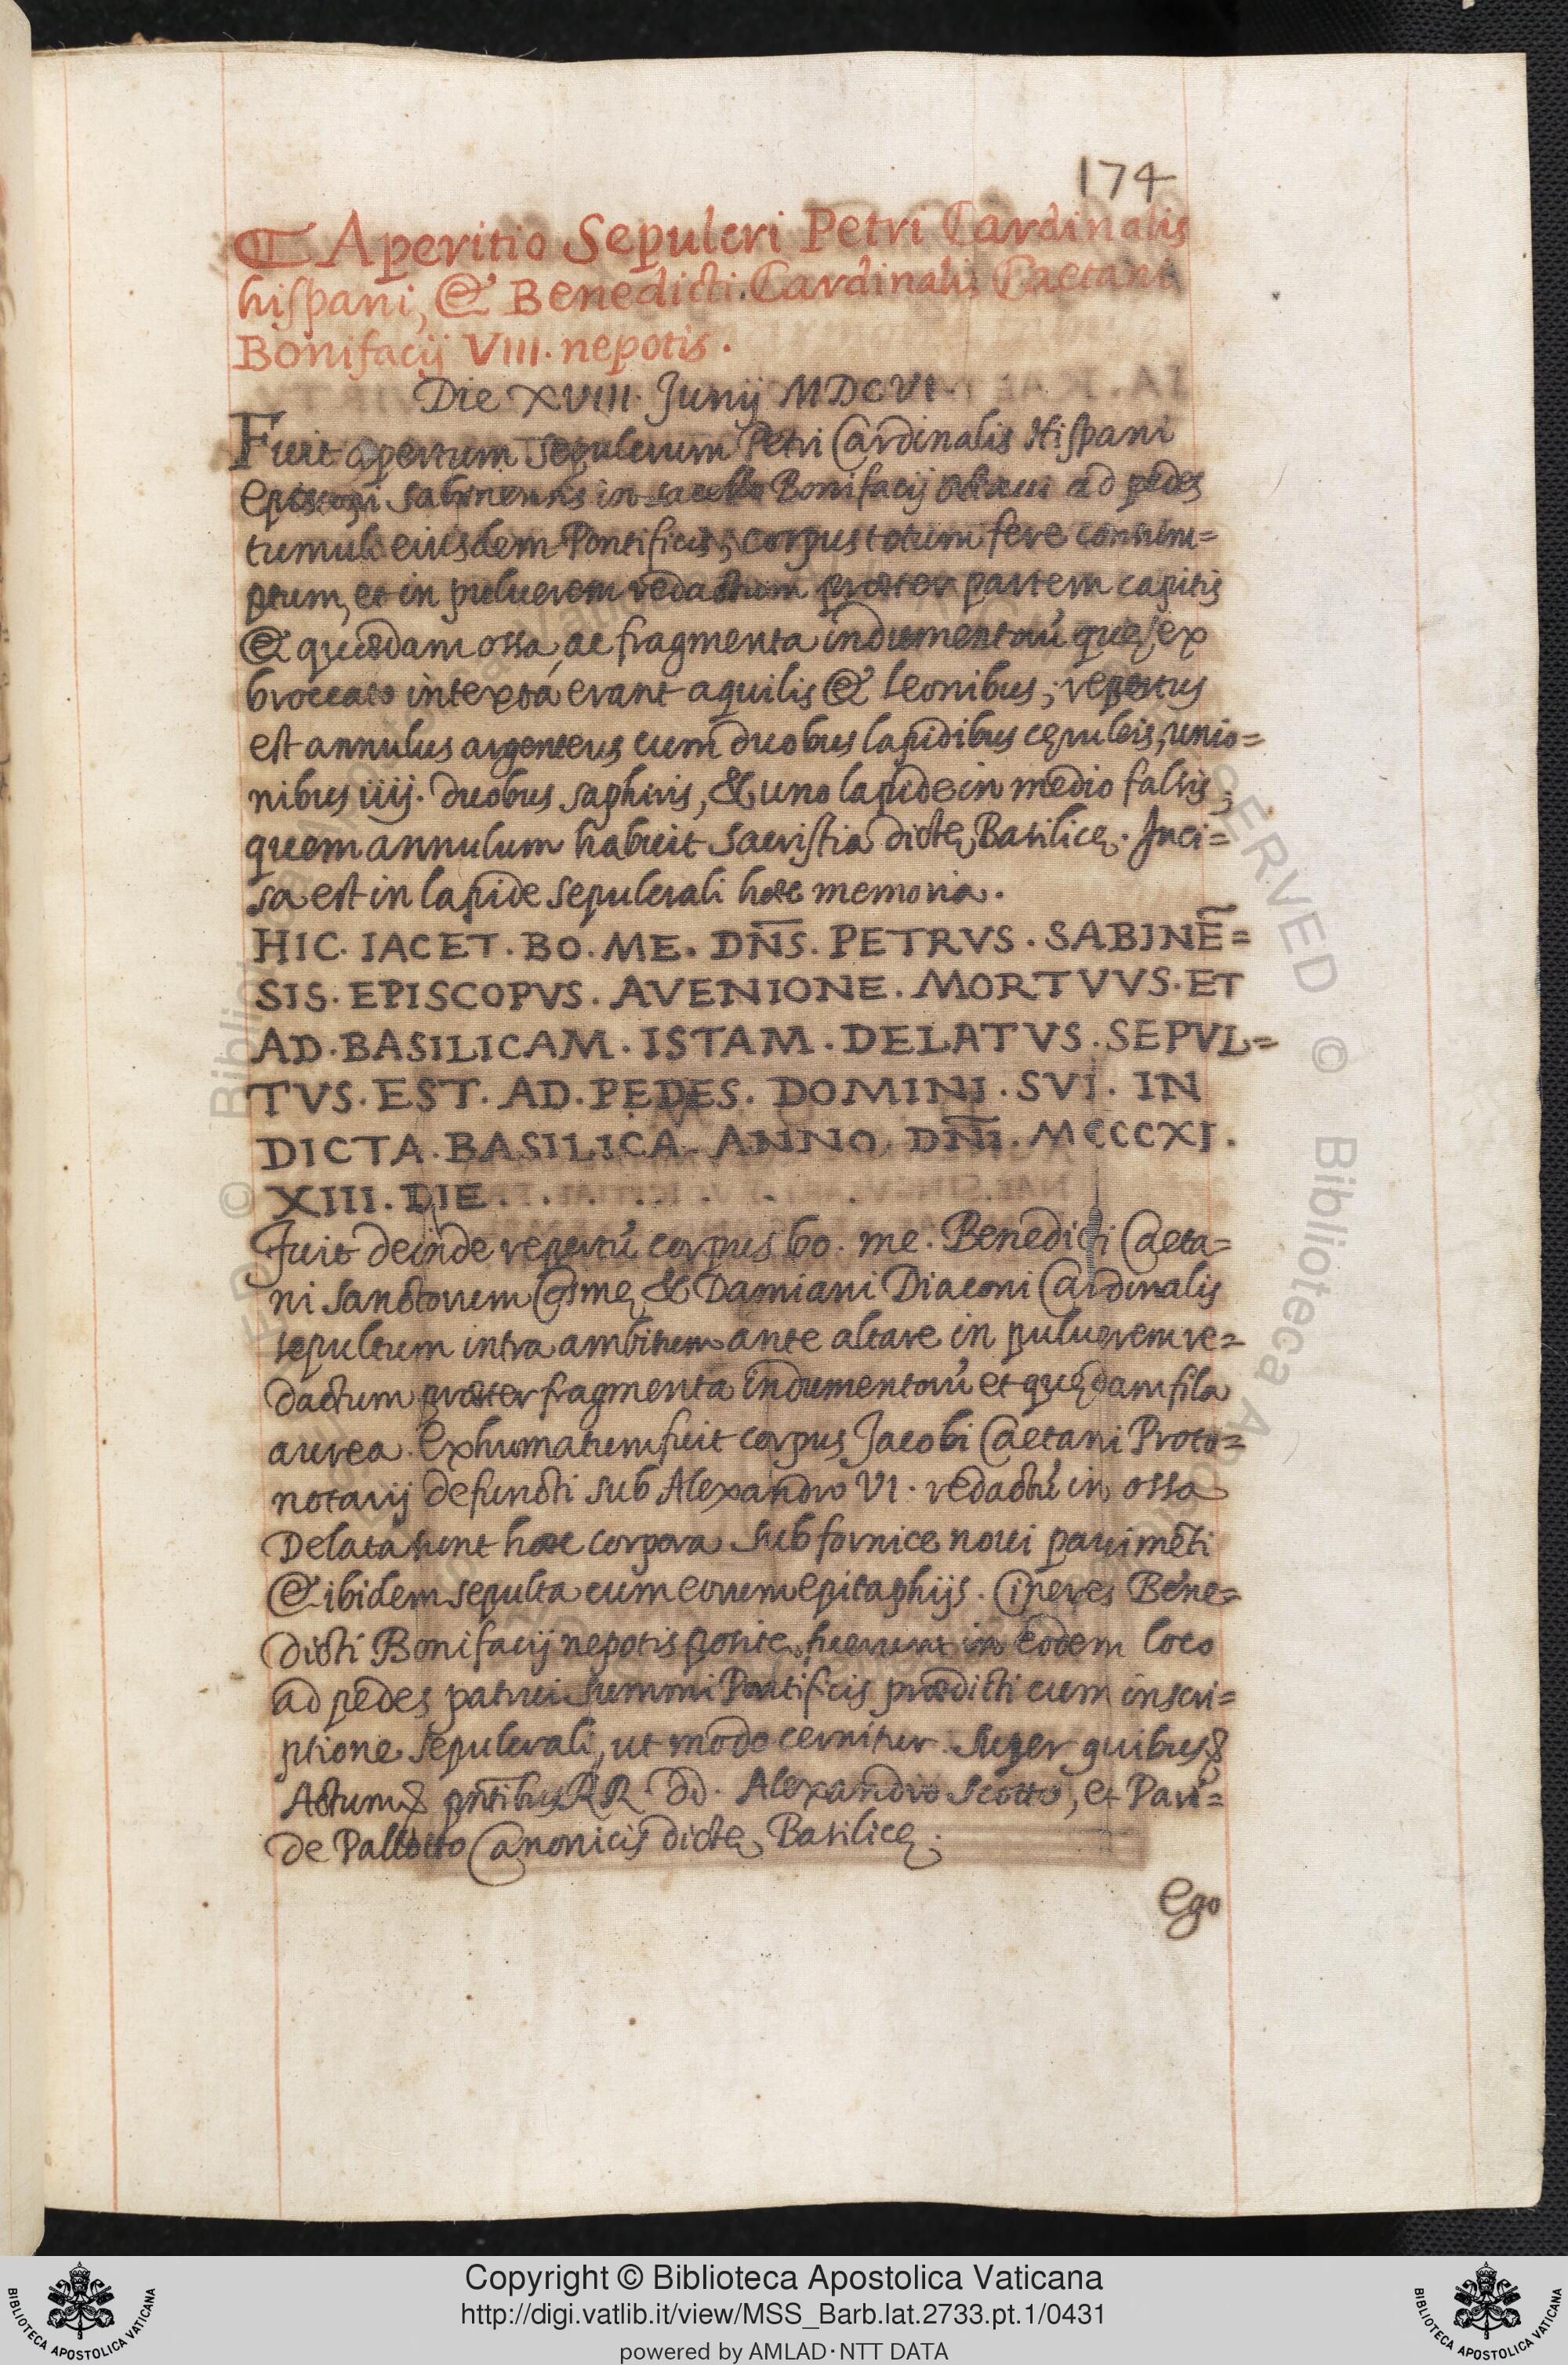 174
Aperitio Sepulcri Petri Cardinalis
hispani, & Benedicti Cardinalis Caetani
Bonifacij VIII. nepotis.
Die XVIII. Junij MDCVI.
Fuit apertum sepulcrum Petri Cardinalis Hispani
episcopi Sabinensis in sacello Bonifacij octaui ad pedes
tumuli eiusdem Pontificis, corpus totum fere consum=
ptum, et in puluerem redactum præter partem capitis
& quædam ossa, ac fragmenta indumentorū, quę ex
broccato intexta erant aquilis & leonibus; repertus
est annulus argenteus cum duobus lapidibus cęruleis, unio=
nibus iiij. duobus saphiris, & uno lapide in medio falsis;
quem annulum habuit sacristia dictę Basilicę. Inci=
sa est in lapide sepulcrali hæc memoria.
HIC. IACET. BO. ME. DN̄S. PETRVS. SABINẼ=
SIS. EPISCOPVS. AVENIONE. MORTVVS. ET
AD. BASILICAM. ISTAM. DELATVS. SEPVL=
TVS. EST. AD. PEDES. DOMINI. SVI. IN
DICTA. BASILICA. ANNO. DN̄I. MCCCXI.
XIII. DIE. . . . . . . . .
Fuit deinde repertū corpus bo. me. Benedicti Caeta=
ni sanctorum Cosmę & Damiani Diaconi Cardinalis
sepultum intra ambitum ante altare in puluerem re=
dactum præter fragmenta indumentorū et quędam fila
aurea. Exhumatum fuit corpus Jacobi Caetani Proto=
notarij defuncti sub Alexandro VI. redactū in ossa
Delata sunt hæc corpora sub fornice noui pauimēti
& ibidem sepulta cum eorum epitaphijs. Cineres Bene=
dicti Bonifacij nepotis positę fuerunt in eodem loco
ad pedes patrui summi Pontificis prædicti cum inscri=
ptione sepulcrali, ut modo cernitur. Super quibus &
Actum & pn̄tibus RR. DD. Alexandro Scotto, et Pari=
de Pallotto Canonicis dictę Basilicę.
Ego
Copyright © Biblioteca Apostolica Vaticana
http://digi.vatlib.it/view/MSS_Barb.lat.2733.pt.1/0431
powered by AMLAD·NTT DATA
BIBLIOTECA APOSTOLICA VATICANA
BIBLIOTECA APOSTOLICA VATICANA